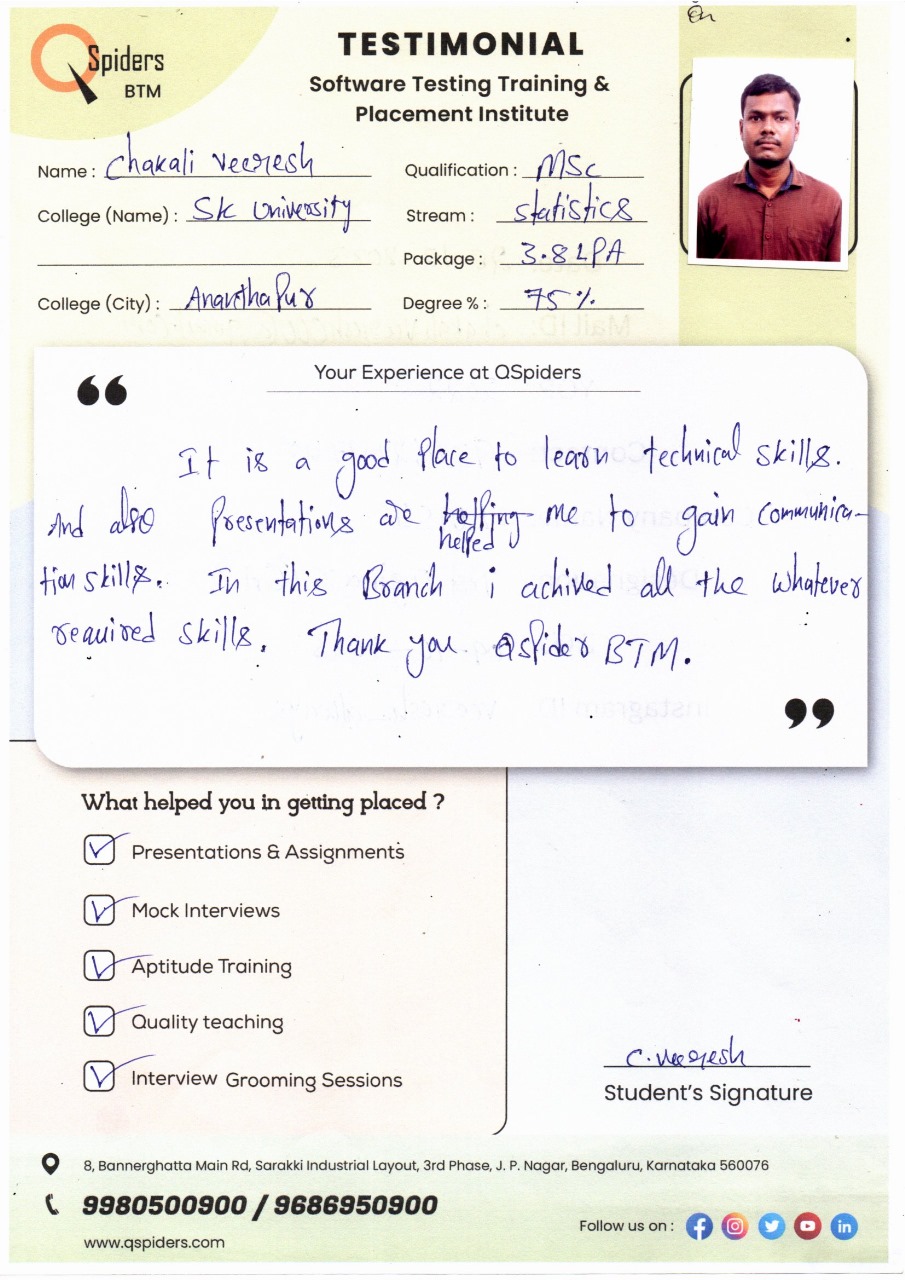 Spiders
BTM
TESTIMONIAL
Software Testing Training &
Placement Institute
Name : Chakali Veeresh
Qualification : MSc
College (Name) : SK University
Stream : statistics
Package : 3.8 LPA
College (City) : Ananthapur
Degree % : 75 %
Your Experience at QSpiders
It is a good place to learn technical skills.
And also presentations are helping helped me to gain communica-
tion skills. In this Branch i achived all the whatever
required skills. Thank you Qspider BTM.
What helped you in getting placed ?
Presentations & Assignments
Mock Interviews
Aptitude Training
Quality teaching
Interview Grooming Sessions
C. Veeresh
Student's Signature
8, Bannerghatta Main Rd, Sarakki Industrial Layout, 3rd Phase, J. P. Nagar, Bengaluru, Karnataka 560076
9980500900 / 9686950900
www.qspiders.com
Follow us on :